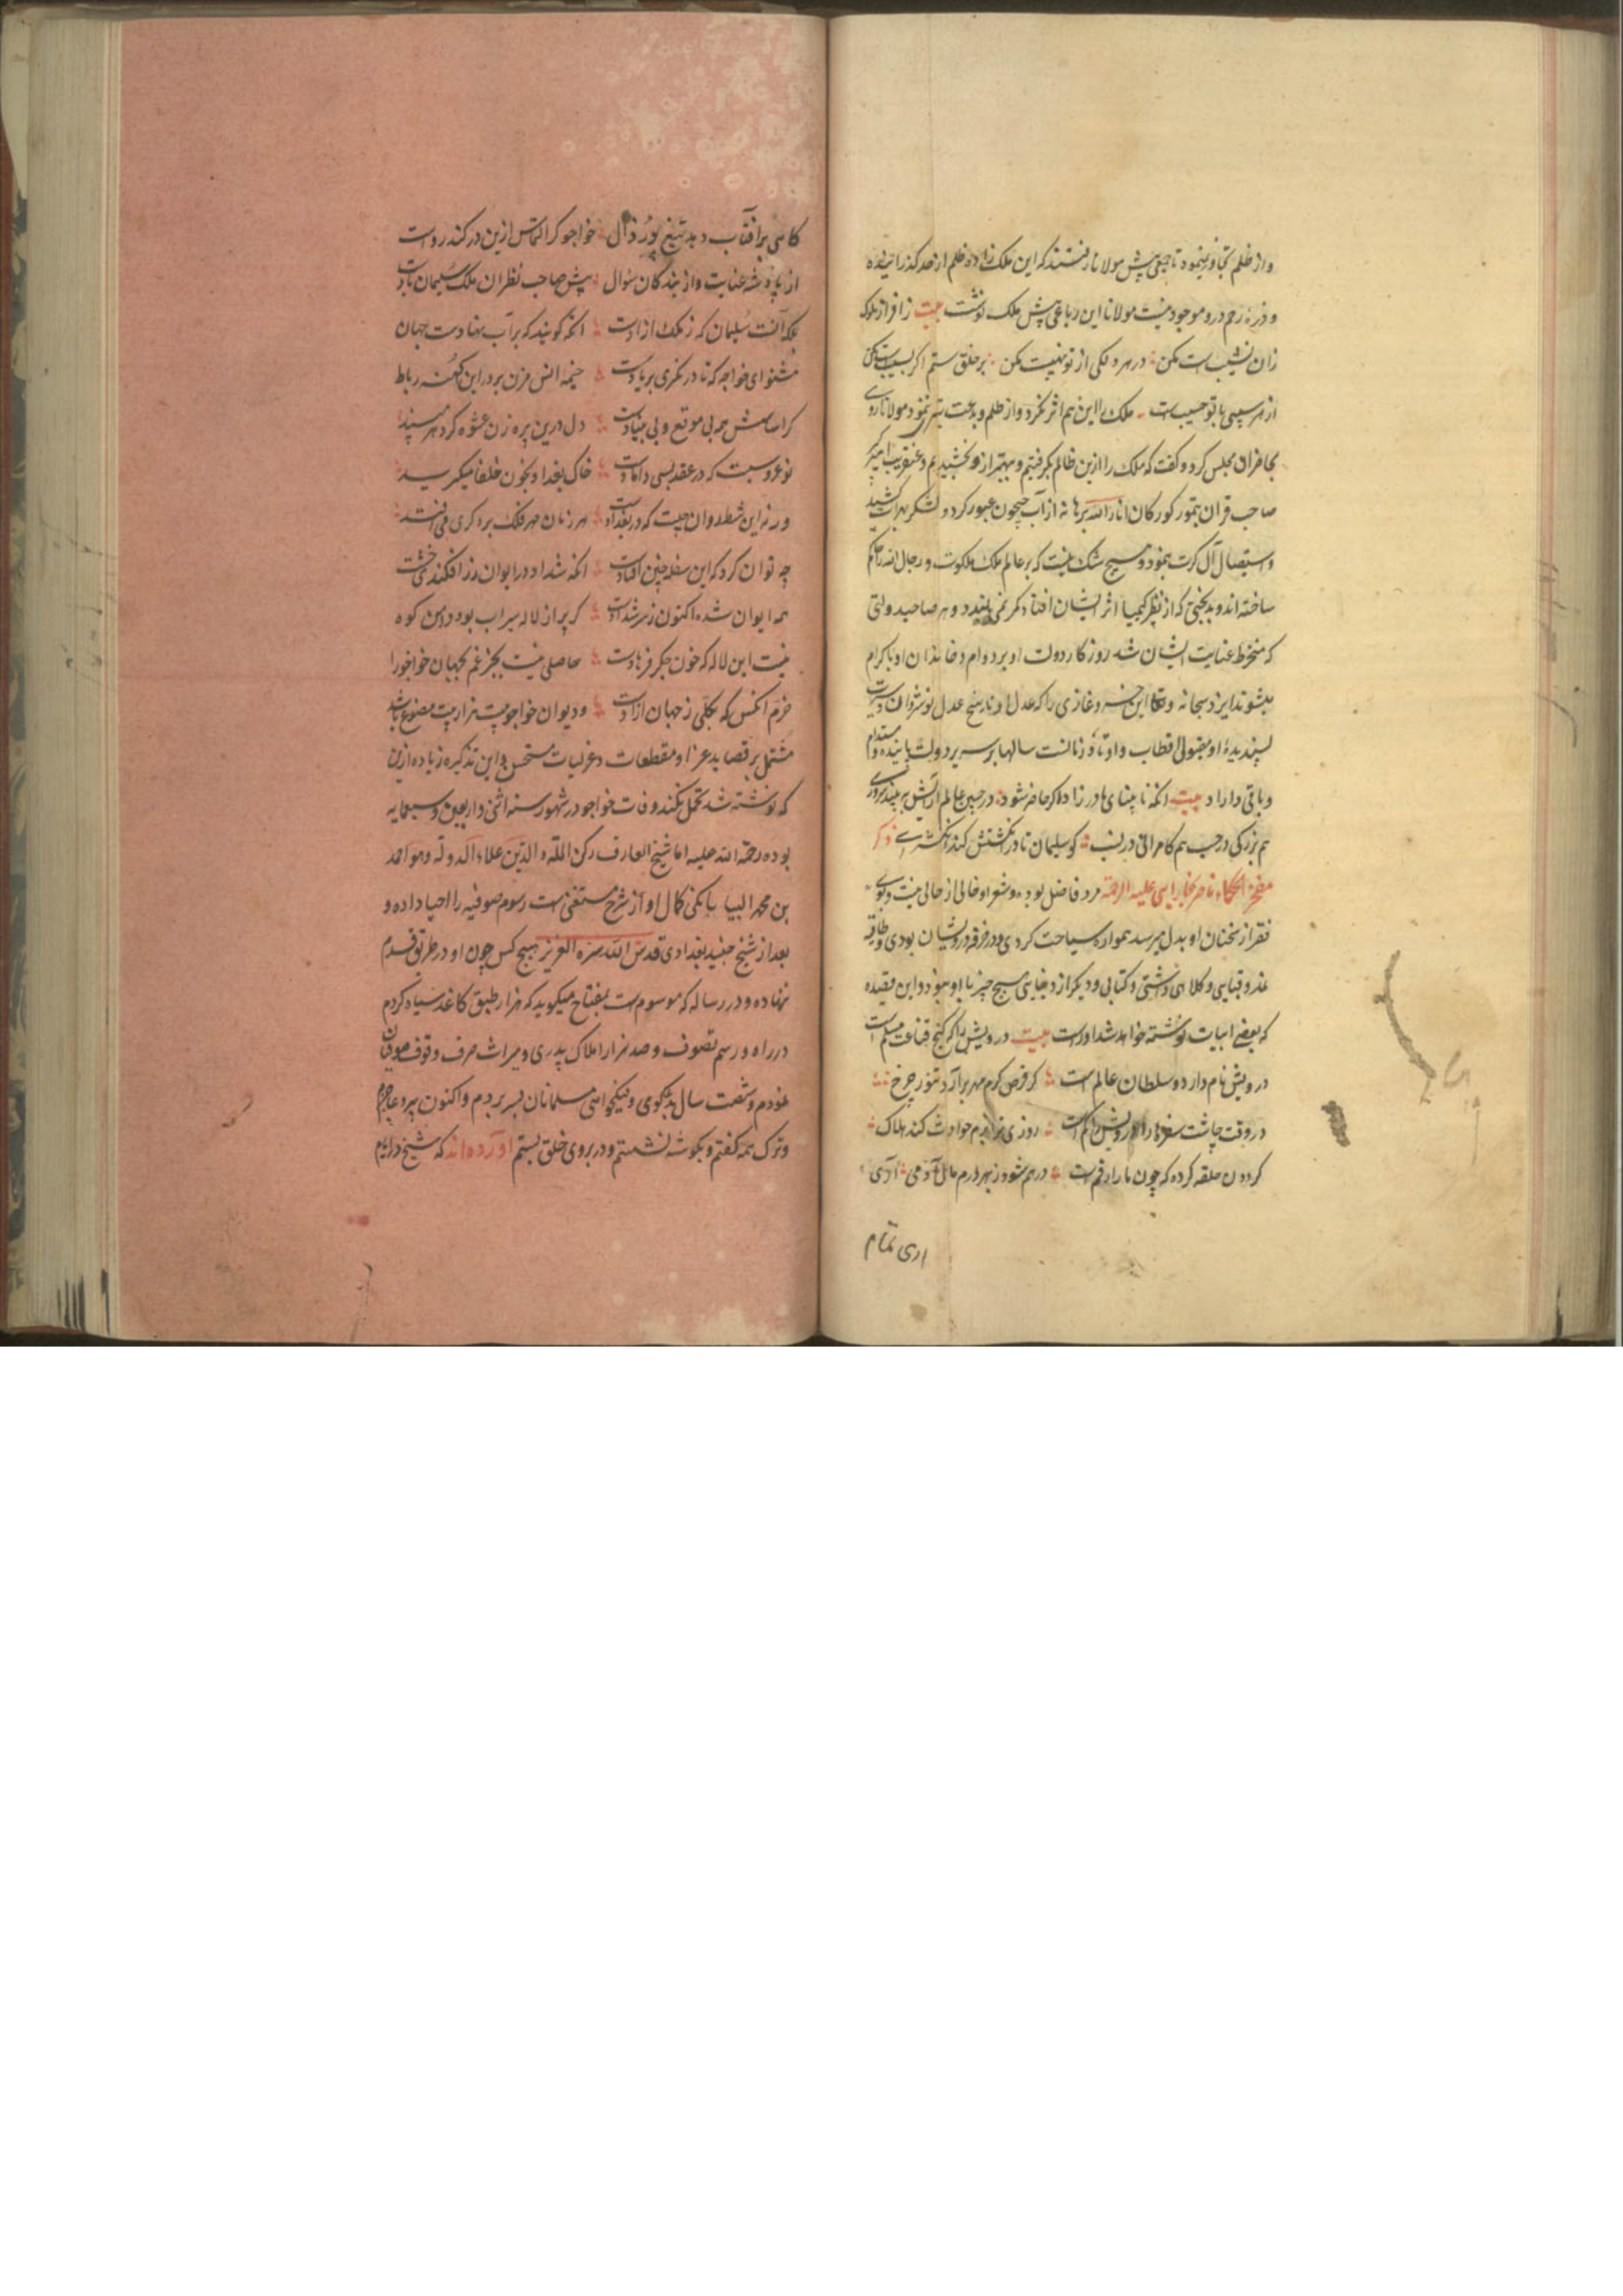 واز ظلم تجاوز ننموده تا جمعی پیش مولانا رفتند که این ملک زاده ظلم از حد گذرانیده
و ذرهٔ رحم درو موجود نیست مولانا این رباعی پیش ملک نوشت بیت ز افراز ملوک
زان نشیب است مکن در هر دلکی از تو نهیبست مکن بر خلق ستم اگر بسیبست مکن
از هر سیبی با تو حسیب است ملک را این هم اثر نکرد و از ظلم و بدعت تبرا ننمود مولانا روی
بحاضران مجلس کرد و گفت که ملک را ازین ظالم بگرفتیم و بهتر ازو بخشیدیم و عنقریب امیر کبیر
صاحب قران تیمور کورکان انار الله برهانه از آب جیحون عبور کرد و لشکر بهرات کشید
و استیصال آل کرت نمود و هیچ شک نیست که بر عالم ملک و ملکوت و رجال الله را حاکم
ساخته اند و بدبختی که از نظر کیمیا اثر ایشان افتاد کمر نمی بندد و هر صاحب دولتی
که منخرط عنایت ایشان شد روزکار دولت او بر دوام و خاندان او با کرام
میشوند ایزد سبحانه و تعالی این خسرو غازی را که عدل او ناسخ عدل نوشروان و سیرت
پسندیدهٔ او مقبول اقطاب و اوتاد زمانست سالها بر سریر دولت پاینده و مستدام
و باقی داراد بیت انکه نابینای مادرزاد اکر حاضر شود در جبین عالم آرایش ببیند سروری
هم بزرگی در حسب هم کامرانی در نسب کو سلیمان تا در انگشتش کند انگشتری ذکر
مفخر الحکماء ناصر بخارایی علیه الرحمه مرد فاضل بوده و شعر او خالی از حالی نیست و بوی
فقر از سخنان او بدل میرسد همواره سیاحت کردی و در خرقه درویشان بودی و طاقیه
نمد و قبایی و کلاهی داشتی و کتابی و دیکر از دنیایی هیچ چیز با او نبود و این قصیده
که بعضی ابیات نوشته خواهد شد اوراست بیت درویش را که کنج قناعت مسلم است
درویش نام دارد و سلطان عالم است کر قرص کرم مهر برآرد تنور چرخ
در وقت چاشت سفره را درویش را کم است روزی نرا بدم حوادث کند هلاک
کردون حلقه کرده که چون مار ارقم است در هم شود ز بهر درم حال آدمی آری
اری تمام
کاسی بر افتاب دهد تیغ پور زال خواجو کر التماس ازین در کند رواست
از پادشه عنایت و از بندکان سوال پیش صاحب نظران ملک سلیمان بادست
بلکه آنست سلیمان که ز ملک ازادست انکه کویند که بر آب نهادست جهان
مشنو ای خواجه که تا در نکری بر بادست خیمه انس مزن بر در این کهنه رباط
که اساسش همه بی موقع و بی بنیادست دل درین پیره زن عشوه کر دهر مبند
نو عروسیست که در عقد بسی دامادست خاک بغداد بخون خلفا میکرید
ورنه این شط روان چیست که در بغداد است هر زمان مهر فلک بر دکری می افتد
چه توان کرد که این سفله چنین افتادست انکه شداد در ایوان ز زر افکندی خشت
همه ایوان شده اکنون ز سر شدادست کر پر از لاله سیراب بود دامن کوه
نیست این لاله که خون جکر فرهادست حاصلی نیست بجز غم بجهان خواجو را
خرم انکس که بکلی ز جهان ازادست و دیوان خواجو بیست هزار بیت مصنوع باشد
مشتمل بر قصاید غرا و مقطعات و غزلیات مستحسن و این تذکره زیاده ازین
که نوشته شد تحمل نکند وفات خواجو در شهور سنه اثنی و اربعین و سبعمایه
بوده رحمة الله علیه اما شیخ العارف رکن الملة و الدین علاء الدوله و هو احمد
بن محمد البیابانکی کمال او از شرح مستغنی است رسوم صوفیه را احیا داده و
بعد از شیخ جنید بغدادی قدس الله سره العزیز هیچ کس چون او در طریق قدم
ننهاده و در رساله که موسوم است بمفتاح میکوید که هزار طبق کاغذ سیاه کردم
در راه و رسم تصوف و صد هزار املاک پدری و میراث صرف و وقف صوفیان
نمودم و شصت سال بنیکوی و نیکخواهی مسلمانان بسر بردم و اکنون پیر و عاجزم
و ترک همه کفتم و بکوشه نشستم و در بروی خلق بستم آورده اند که شیخ در ایام